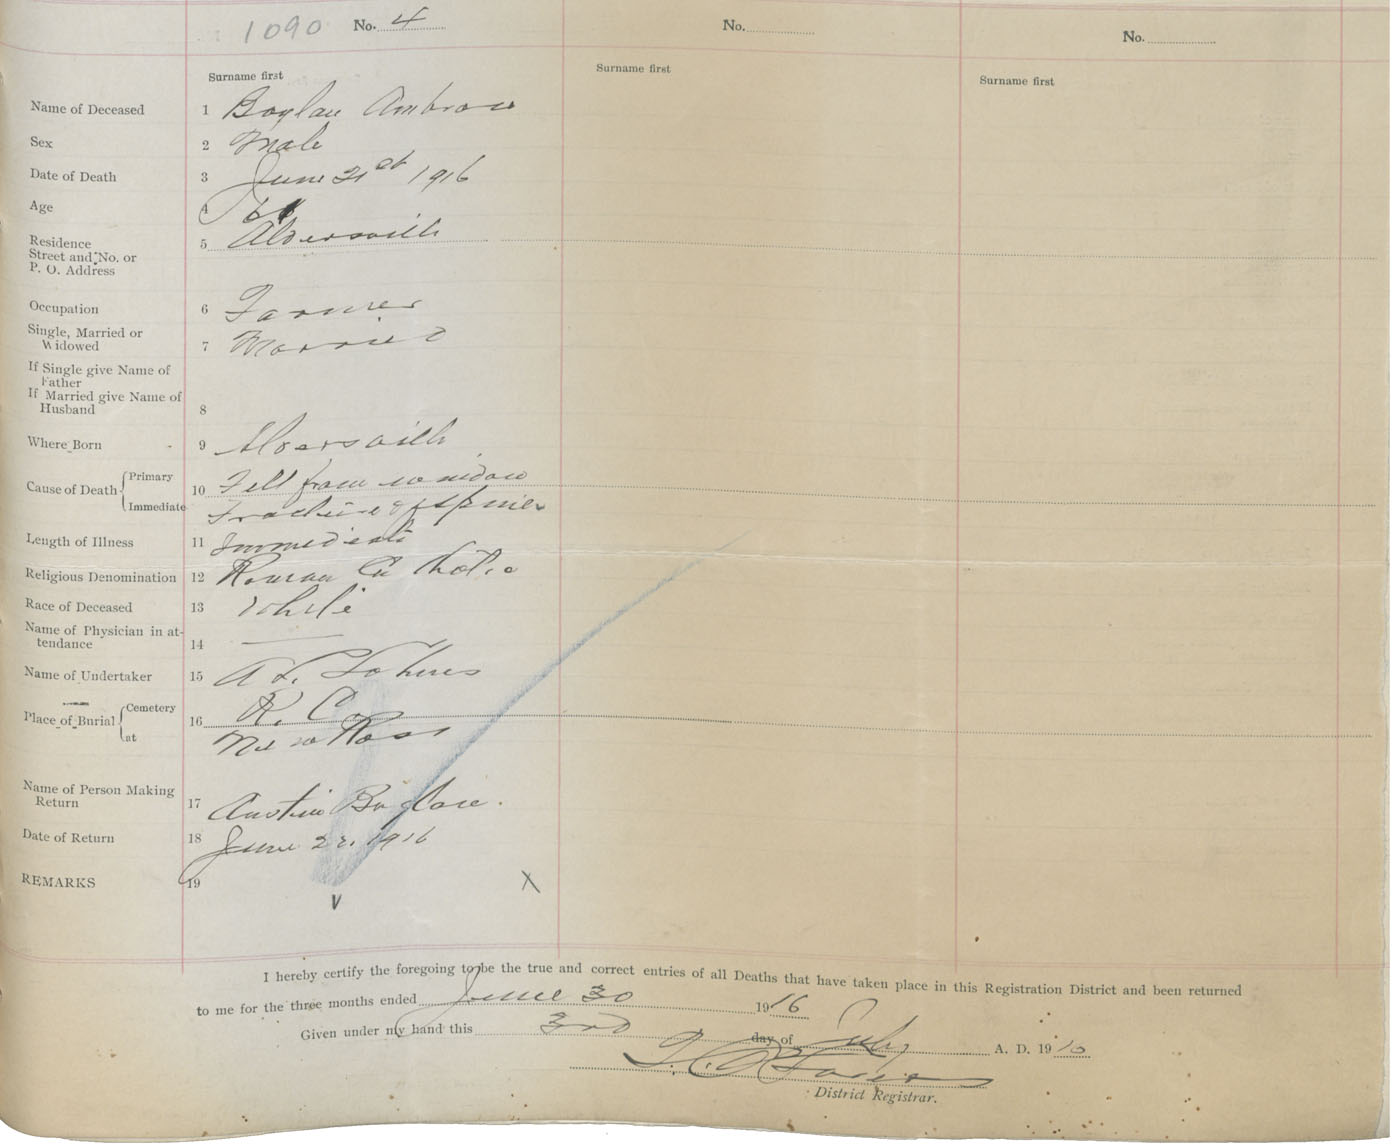 1090 No. 4 No. No.
Surname first Surname first Surname first
Name of Deceased 1 Boylan Ambrose
Sex 2 Male
Date of Death 3 June 21st 1916
Age 4
Residence
Street and No. or
P. O. Address 5 Aldersville
Occupation 6 Farmer
Single, Married or
Widowed 7 Married
If Single give Name of
Father
If Married give Name of
Husband 8
Where Born 9 Aldersville
Cause of Death Primary 10 Fell from window
Immediate Fracture of spine
Length of Illness 11 Immediate
Religious Denomination 12 Roman Catholic
Race of Deceased 13 White
Name of Physician in at-
tendance 14 —
Name of Undertaker 15 A
Place of Burial Cemetery 16 R. C.
at New Ross
Name of Person Making
Return 17 Austin Boylan
Date of Return 18 June 22, 1916
REMARKS 19
X
V
I hereby certify the foregoing to be the true and correct entries of all Deaths that have taken place in this Registration District and been returned
to me for the three months ended June 30 1916
Given under my hand this 3rd day of July A. D. 19
District Registrar.